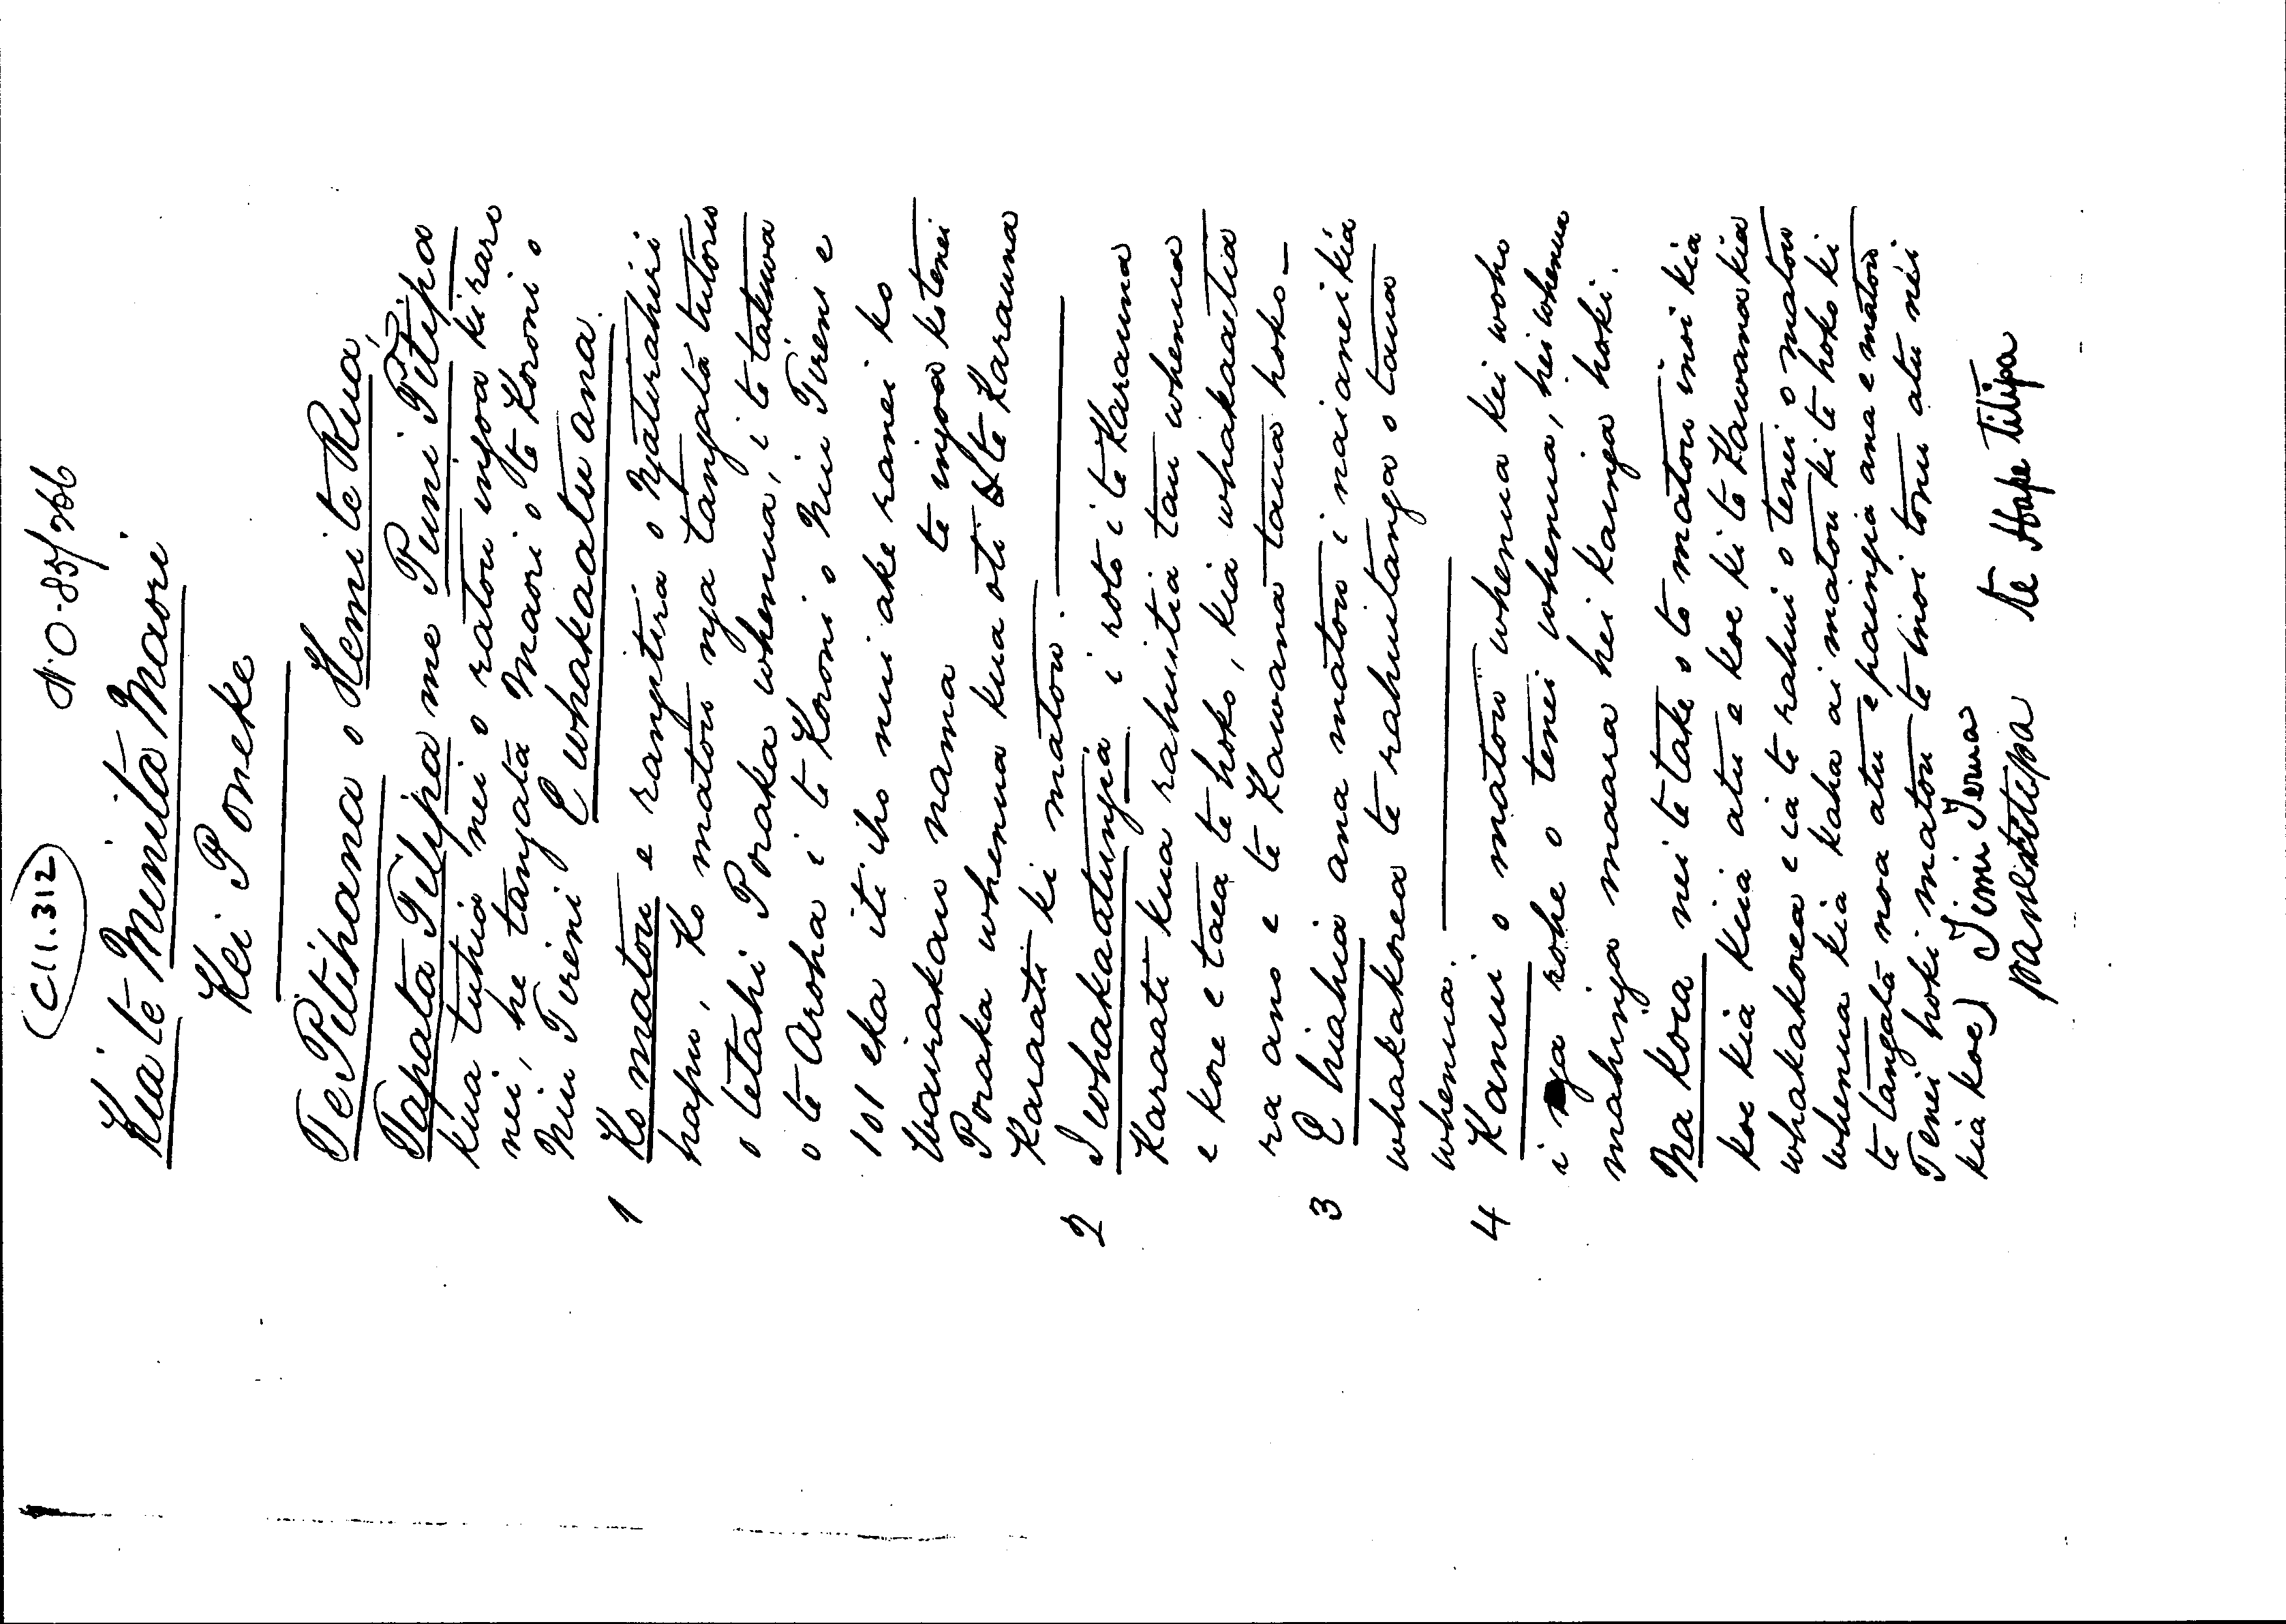 C11.312
N.O-85/266
Kia te Minita Maori
Kei Poneke
Te Pitihana o Hemi te Rua,
Tapata Tilipa me Puni Tilipa
kua tuhia nei o ratou ingoa ki raro
nei, he tangata Maori o te Koroni o
Nui Tireni E whakaatu ana.
1 Ko matou e rangitira o Ngaturahiri
hapu, Ko matou nga tangata tuturu
o tetahi Poraka whenua, i te takiwa
o te Aroha i te Koroni o Nui Tireni e
101 eka iti iho nui ake ranei ko
Wairakau nama te ingoa ko tenei
Poraka whenua kua oti te Karauna
Karaati ki matou.
2 I whakaaturia i roto i te Karauna
Karaati kua rahuitia tau whenua
e kore e taea te hoko, kia whakaaetia
ra ano e te Kawana taua hoko -
3 E hiahia ana matou i naianei kia
whakakorea te rahuitanga o taua
whenua.
4 Kanui o matou whenua kei waho
i nga rohe o tenei whenua, hei whenua
mahinga maara hei kainga hoki.
Na koia nei te take o to matou inoi kia
koe kia kua atu e koe ki te Kawana kia
whakakorea e ia te rahui o tenei o matou
whenua kia kaha ai matou ki te hoko ki
te tangata noa atu e paingia ana e matou
Tenei hoki matou te inoi tonu atu nei
kia koe)
te Hape tilipa